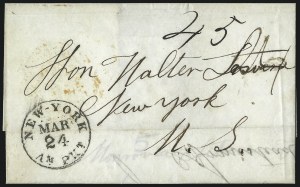 45
Hon Walter
New York
U. S.
NEW-YORK
MAR
24
AM PKT